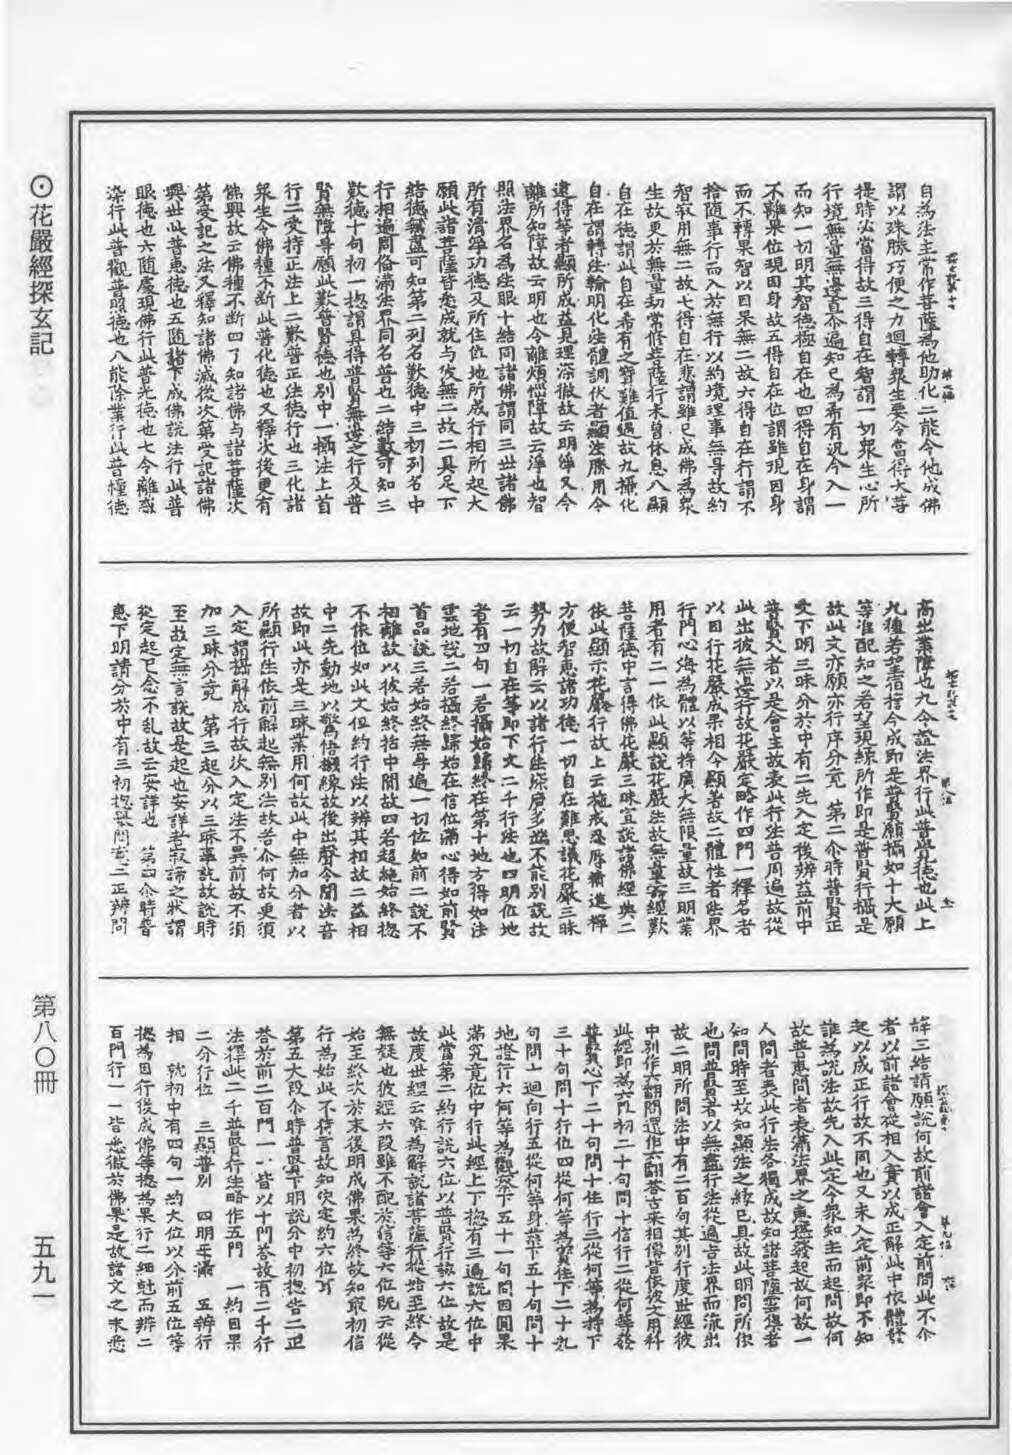 ⊙花嚴經探玄記
第八〇冊
五九一
自為法主常作菩薩為他助化二能令他成佛
謂以殊勝巧便之力迴轉眾生要令當得大菩
提時必當得故三得自在智謂一切眾生心所
行境無量無邊直尒遍知已為希有況今入一
而知一切明其智德極自在也四得自在身謂
不離果位現因身故五得自在位謂雖現因身
而不轉果智以因果無二故六得自在行謂不
捨隨事行而入於無行以約境理事無㝵故約
智寂用無二故七得自在悲謂雖已成佛為眾
生故更於無量劫常修菩薩行未曾休息八顯
自在德謂此自在希有之寶難值遇故九攝化
自在謂轉法輪明化法體調伏者顯法勝用令
逮得等者顯所成益見理深徹故云明淨又令
離所知障故云明也令離煩惱障故云淨也智
照法界名為法眼十結同諸佛謂同三世諸佛
所有清淨功德及所住位地所成行相所起大
願此諸菩薩皆悉成就与彼無二故二具足下
結德廣㪽可知第二列名歎德中三初列名中
行相遍周俗滿法界同名普也二結數可知三
歎德十句初一揔謂具得普賢無邊之行及普
賢無障㝵願此歎普賢德也別中一攝法上首
行二受持正法上二歎普正法德行也三化諸
眾生令佛種不斷此普化德也又釋次後更有
佛興故云佛種不斷四了知諸佛与諸菩薩次
第受記之法又釋知諸佛滅後次第受記諸佛
興世此普惠德也五隨諸下成佛說法行此普
眼德也六隨處現佛行此普光德也七令離惑
染行此普觀普照德也八能除業行此普幢德
高出業障也九令證法界行此普覺德也此上
九種若望宿行今成即是普賢願攝如十大願
等准配知之若望現緣所作即是普賢行攝是
故此文亦願亦行序分竟　第二尒時普賢正
受下明三昧分於中有二先入定後辨益前中
普賢入者以是會主故表此行法普周遍故從
此出彼無邊行故花嚴定略作四門一釋名者
以因行花嚴成果相令顯著故二體性者法界
行門心海為體以等持廣大無限量故三明業
用者有二一依此顯說花嚴法故無量壽經歎
菩薩德中言得佛花嚴三昧宣說諸佛經典二
依此顯示花嚴行故上云施戒忍辱精進禪
方便智惠諸功德一切自在難思議花嚴三昧
勢力故解云以諸行法深廣多端不能別說故
云一切自在等即下文二千行法也四明位地
者有四句一若攝始歸終在第十地方得如法
雲地說二若攝終歸始在信位滿心得如前賢
首品說三若始終無㝵遍一切位如前二說不
相離故以彼始終括中間故四若超絕始終揔
不依位如此文但約行法以辨其相故二益相
中二先動地以驚悟攝緣故後出聲令聞法音
故即此亦是三昧業用何故此中無加分者以
所顯行法依前解起無別法故若尒何故更須
入定謂攝解成行故次入定法不異前故不須
加三昧分竟　第三起分以三昧事訖故說時
至故定無言說故是起也安詳者寂諦之狀謂
從定起已念不乱故云安詳也　第四尒時普
惠下明請分於中有三初揔舉問意二正辨問
辞三結請願說何故前諸會入定前問此不尒
者以前諸會從相入實以成正解此中依體發
起以成正行故不同也又未入定前眾即不知
誰為說法故先入此定令眾知主而起問故何
故普惠問者表滿法界之惠能發起故何故一
人問者表此行法各獨成故知諸菩薩雲集者
知問時至故知顯法之緣已具故此明問所依
也問普賢者以無盡行法從遍吉法界而流出
故二明所問法中有二百句其別行度世經彼
中別作六翻問還作六翻荅古來相傳皆依彼文用科
此經即為六門初二十句問十信行二從何等發
普賢心下二十句問十住行三從何等為持下
三十句問十行位四從何等為寶住下二十九
句問十迴向行五從何等身業下五十句問十
地證行六何等為觀察下五十一句問因圓果
滿究竟位中行此經上下揔有三遍說六位中
此當第二約行說六位以普賢行該六位故是
故度世經云唯為解說諸菩薩行從始至終令
無疑也彼經六段雖不配於信等六位既云從
始至終次於末後明成佛果為終故知最初信
行為始此不待言故知突定約六位尒
第五大段尒時普賢下明說分中初揔告二正
荅於前二百門一一皆以十門荅故有二千行
法釋此二千普賢行法略作五門　一約因果
二分行位　三顯普別　四明平滿　五辨行
相　就初中有四句一約大位以分前五位等
揔為因行後成佛等揔為果行二細尅而辨二
百門行一一皆悉徹於佛果是故諸文之末悉